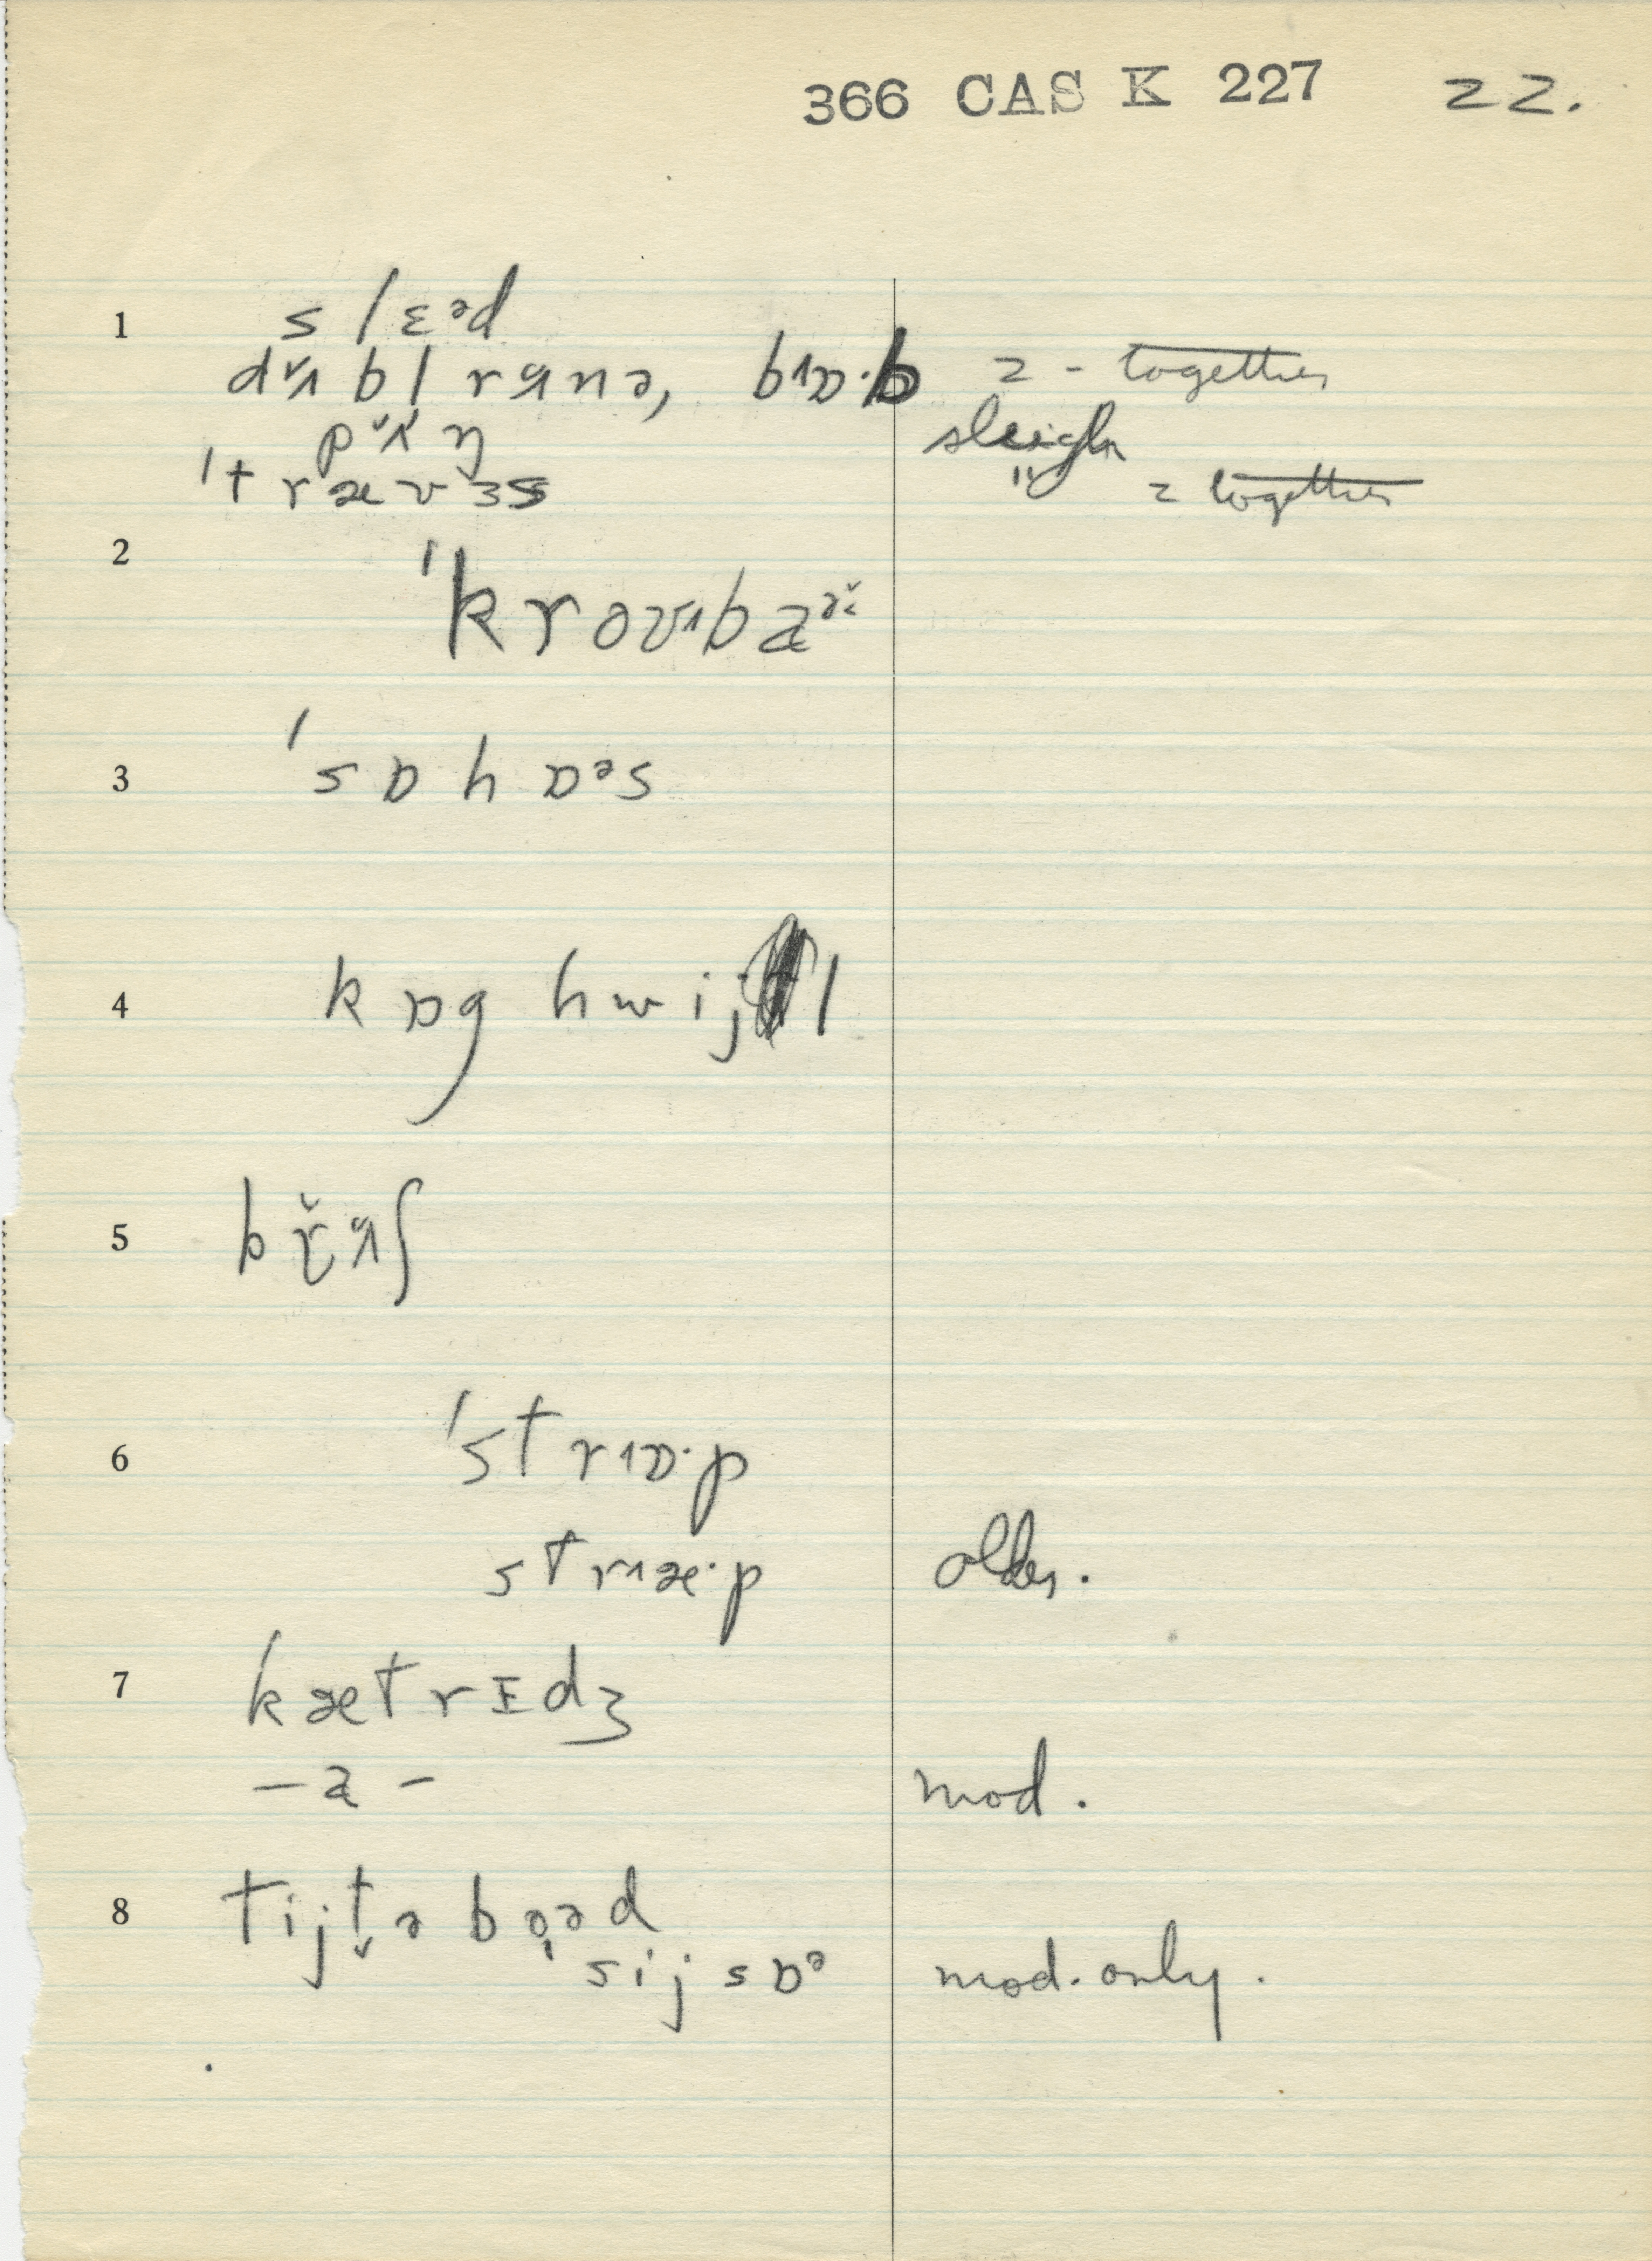 366 CAS K 227 22.
1 s l ɛᵊd
dʌ̆ b l rʌnə, bɒ·b 2 - together
pʌ̆ŋ sleigh
'trævɜs " 2 together
2 'kroᴜbaᵊ̆
3 'sɒhɒᵊs
4 kɒg hwijl
5 brʌ̆ʃ
6 'strɒ·p
stræ·p older.
7 kætrɪdʒ
– a – mod.
8 tijt̬ə bo̞əd
sijsɒᵊ mod. only.